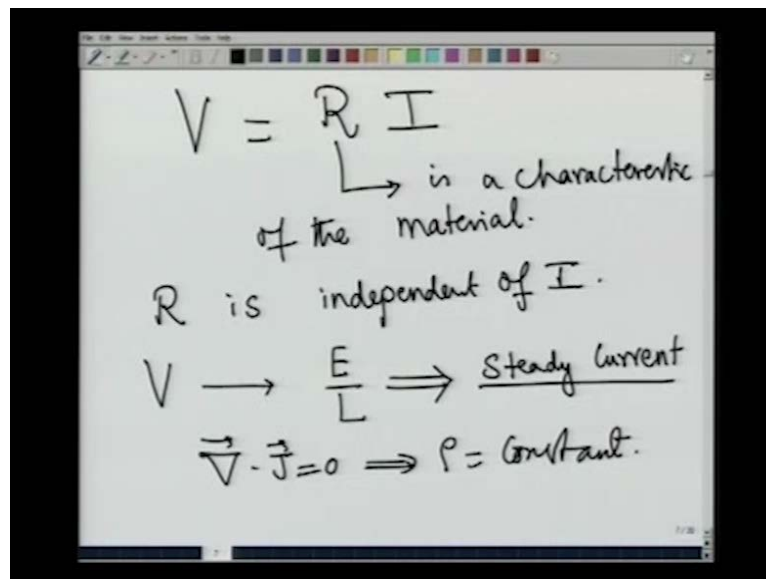 File Edit View Insert Actions Tools Help
V = R I
↳ is a characterestic
of the material.
R is independent of I.
V → E/L ⟹ Steady Current
∇⃗ · J⃗ = 0 ⟹ ρ = Constant.
7/30
7